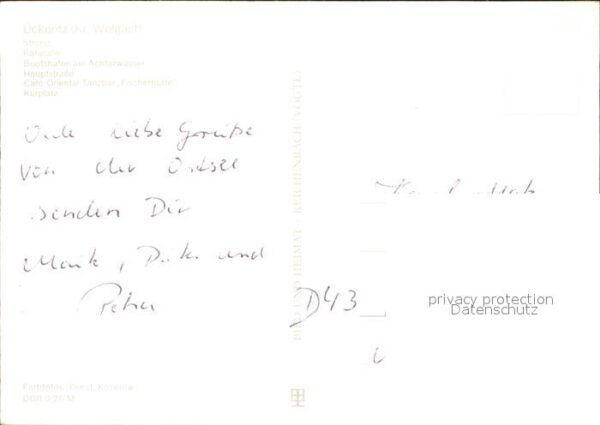 Ückeritz (Kr. Wolgast)
Strand
Rehwiese
Bootshafen am Achterwasser
Hauptstraße
Café-Oriental-Tanzbar „Fischerhütte"
Kurplatz
Viele liebe Gerüße
von der Ostsee
senden Dir
Maik, und
Petra
BILD UND HEIMAT · REICHENBACH (VOGTL)
D43
privacy protection
Datenschutz
Farbfotos: Darr,
DDR 0,20 M